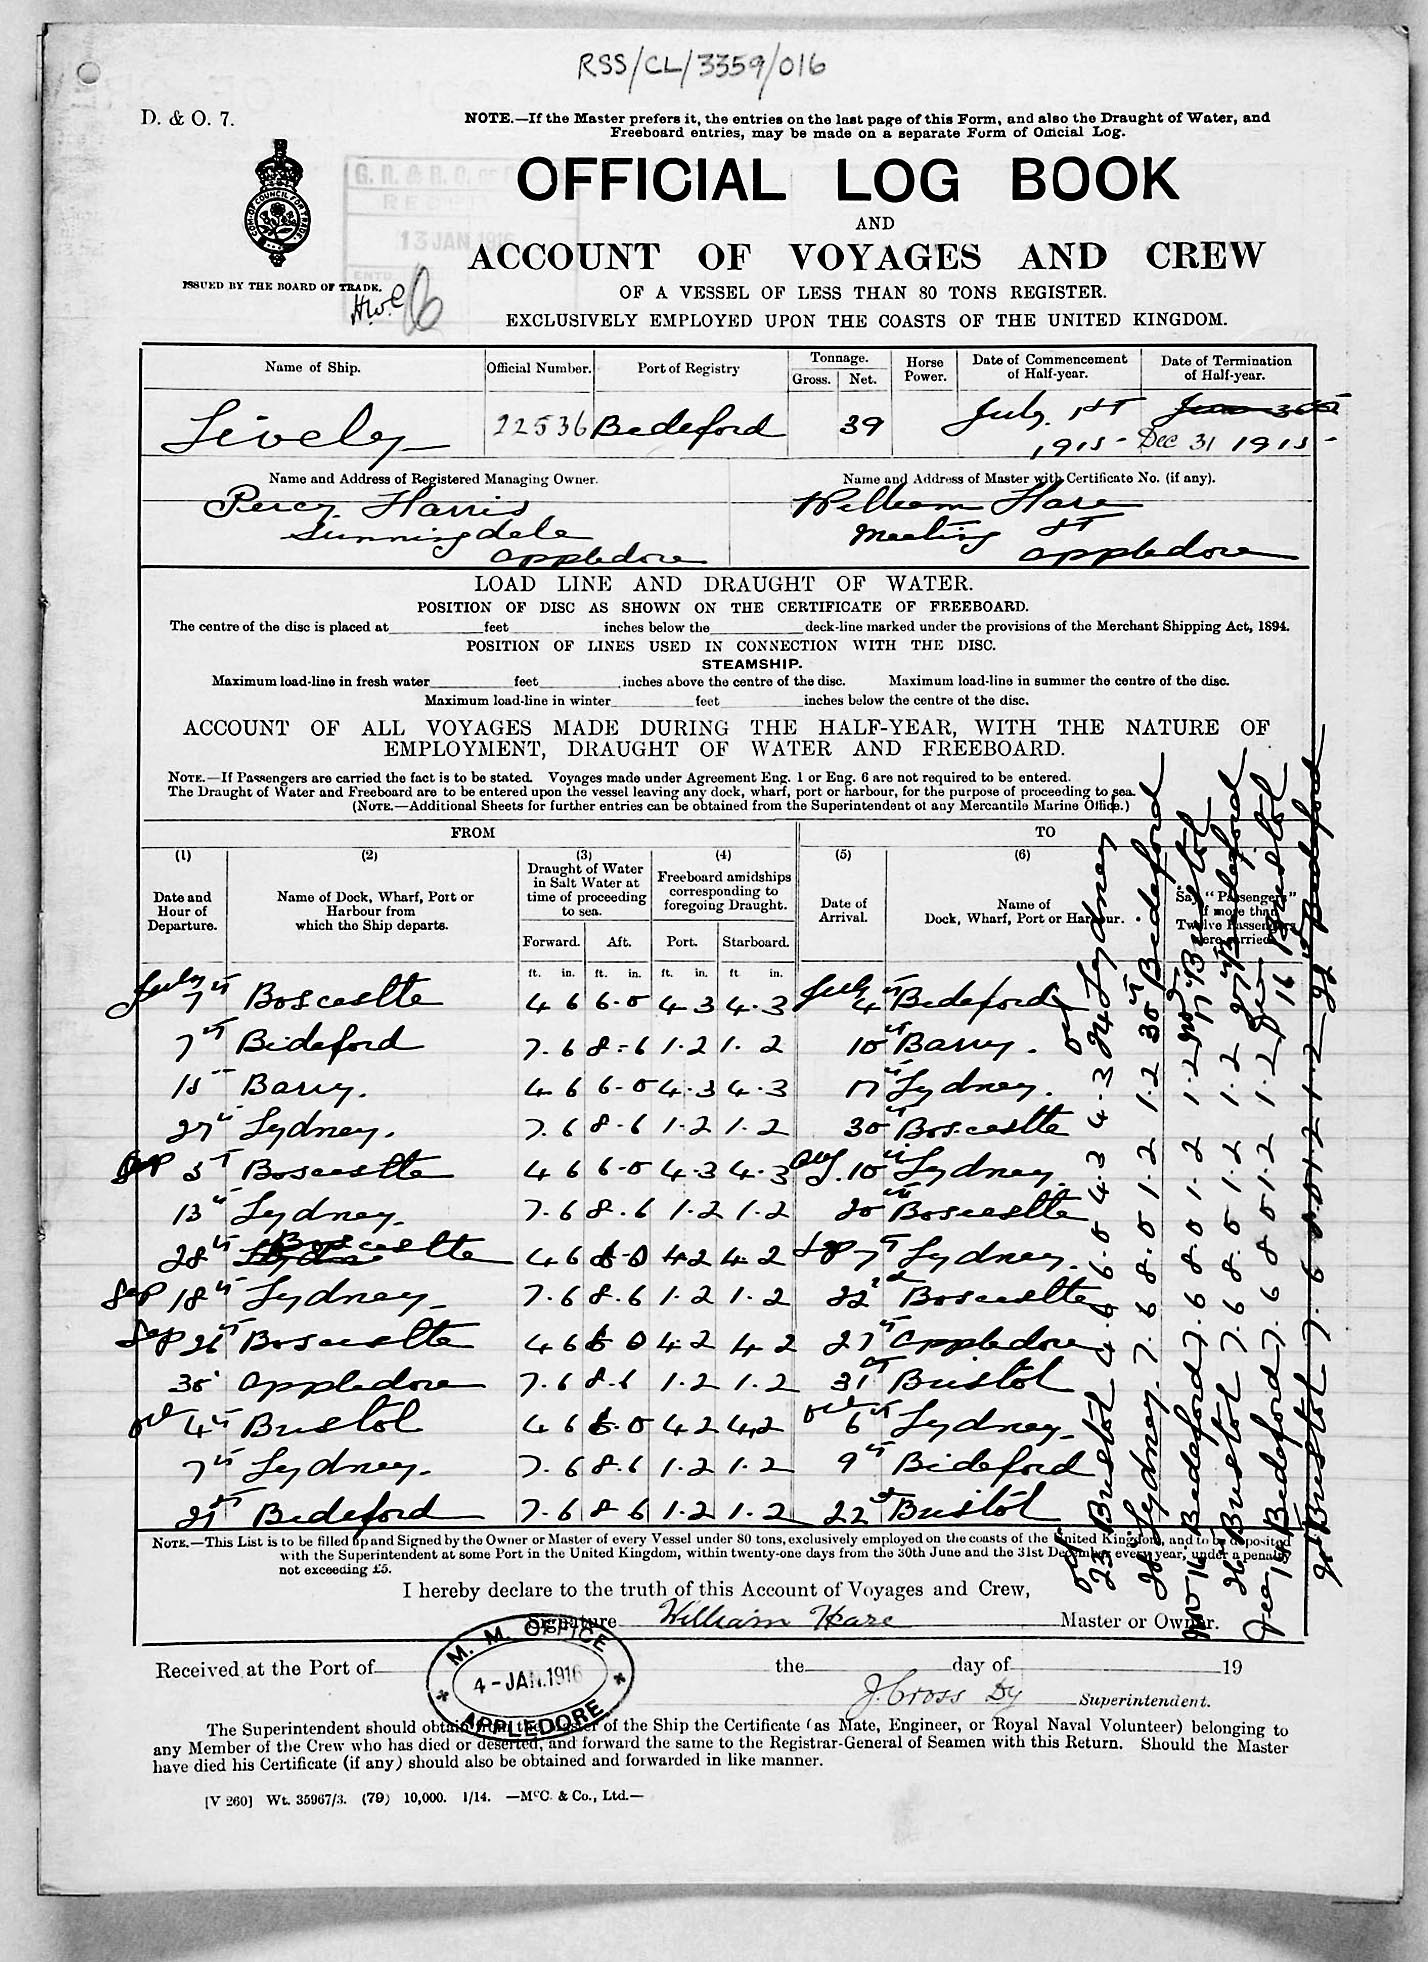 RSS/CL/3359/016
D. & O. 7.
NOTE.—If the Master prefers it, the entries on the last page of this Form, and also the Draught of Water, and
Freeboard entries, may be made on a separate Form of Official Log.
G. R. & R. O.
13 JAN 1916
OFFICIAL LOG BOOK
AND
ACCOUNT OF VOYAGES AND CREW
ISSUED BY THE BOARD OF TRADE.
OF A VESSEL OF LESS THAN 80 TONS REGISTER.
EXCLUSIVELY EMPLOYED UPON THE COASTS OF THE UNITED KINGDOM.
Name of Ship. Official Number. Port of Registry Tonnage. Gross. Net. Horse Power. Date of Commencement of Half-year. Date of Termination of Half-year.
Lively 22536 Bideford 39 July 1st 1915 Dec 31 1915
Name and Address of Registered Managing Owner. Name and Address of Master with Certificate No. (if any).
Percy Harris William Hare
Sunningdale Meeting St
Appledore Appledore
LOAD LINE AND DRAUGHT OF WATER.
POSITION OF DISC AS SHOWN ON THE CERTIFICATE OF FREEBOARD.
The centre of the disc is placed at feet inches below the deck-line marked under the provisions of the Merchant Shipping Act, 1894.
POSITION OF LINES USED IN CONNECTION WITH THE DISC.
STEAMSHIP.
Maximum load-line in fresh water feet inches above the centre of the disc. Maximum load-line in summer the centre of the disc.
Maximum load-line in winter feet inches below the centre of the disc.
ACCOUNT OF ALL VOYAGES MADE DURING THE HALF-YEAR, WITH THE NATURE OF
EMPLOYMENT, DRAUGHT OF WATER AND FREEBOARD.
NOTE.—If Passengers are carried the fact is to be stated. Voyages made under Agreement Eng. 1 or Eng. 6 are not required to be entered.
The Draught of Water and Freeboard are to be entered upon the vessel leaving any dock, wharf, port or harbour, for the purpose of proceeding to sea.
(NOTE.—Additional Sheets for further entries can be obtained from the Superintendent of any Mercantile Marine Office.)
FROM TO
(1) (2) (3) (4) (5) (6)
Date and Hour of Departure. Name of Dock, Wharf, Port or Harbour from which the Ship departs. Draught of Water in Salt Water at time of proceeding to sea. Freeboard amidships corresponding to foregoing Draught. Date of Arrival. Name of Dock, Wharf, Port or Harbour. Say "Passengers" if more than Twelve Passengers were carried
Forward. Aft. Port. Starboard.
ft. in. ft. in. ft. in. ft in.
July Boscastle 4 6 6-0 4-3 4.3 July 4th Bideford
7th Bideford 7.6 8-6 1.2 1.2 10th Barry.
15 Barry. 4 6 6-0 4.3 4.3 17th Lydney.
27th Lydney. 7.6 8-6 1-2 1.2 30th Boscastle
Boscastle 4 6 6-0 4-3 4.3 Aug. 10th Lydney.
13th Lydney. 7.6 8.6 1.2 1.2 20th Boscastle
28th Boscastle 4 6 6-0 4 2 4.2 Sep 7th Lydney.
Sep 18th Lydney 7.6 8.6 1.2 1.2 22nd Boscastle
Sep Boscastle 4 6 6 0 4.2 4 2 27th Appledore
30 Appledore 7.6 8.6 1.2 1.2 31st Bristol
Oct 4th Bristol 4 6 6.0 4 2 4.2 Oct 6th Lydney.
7th Lydney. 7.6 8.6 1.2 1.2 9th Bideford
21st Bideford 7.6 8-6 1.2 1.2 22nd Bristol
Oct 23 Bristol 4.6 6.0 4.3 4.3 Oct Lydney
28th Lydney. 7.6 8.0 1.2 1.2 30th Bideford
Nov 16 Bideford 7.6 8 0 1.2 1.2 Nov 17 Bristol
26th Bristol 7.6 8.0 1.2 1.2 27th Bideford
Dec 15 Bideford 7.6 8 0 1.2 1.2 Dec 16 Bristol
20th Bristol 7.6 8.0 1.2 1.2 22nd Bideford
NOTE.—This List is to be filled up and Signed by the Owner or Master of every Vessel under 80 tons, exclusively employed on the coasts of the United Kingdom, and to be deposited
with the Superintendent at some Port in the United Kingdom, within twenty-one days from the 30th June and the 31st December every year, under a penalty
not exceeding £5.
I hereby declare to the truth of this Account of Voyages and Crew,
Signature William Hare Master or Owner.
M. M. OFFICE
4 - JAN. 1916
APPLEDORE
Received at the Port of the day of 19
J. Cross Dy Superintendent.
The Superintendent should obtain from the Master of the Ship the Certificate (as Mate, Engineer, or Royal Naval Volunteer) belonging to
any Member of the Crew who has died or deserted, and forward the same to the Registrar-General of Seamen with this Return. Should the Master
have died his Certificate (if any) should also be obtained and forwarded in like manner.
[V 260] Wt. 35967/3. (79) 10,000. 1/14. —McC. & Co., Ltd.—